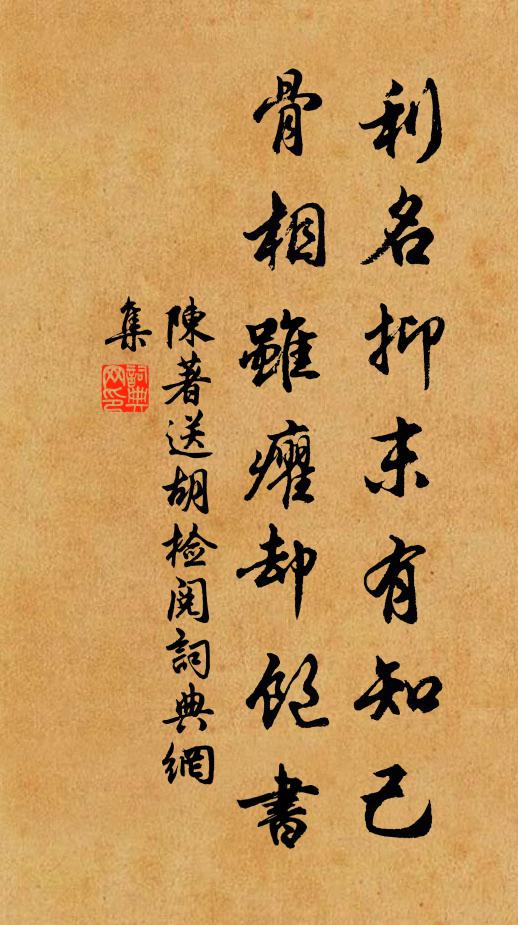 利名抑末有知己
骨相雖癯却飽書
陳著送胡檢閱詞典網
集
詞典網印